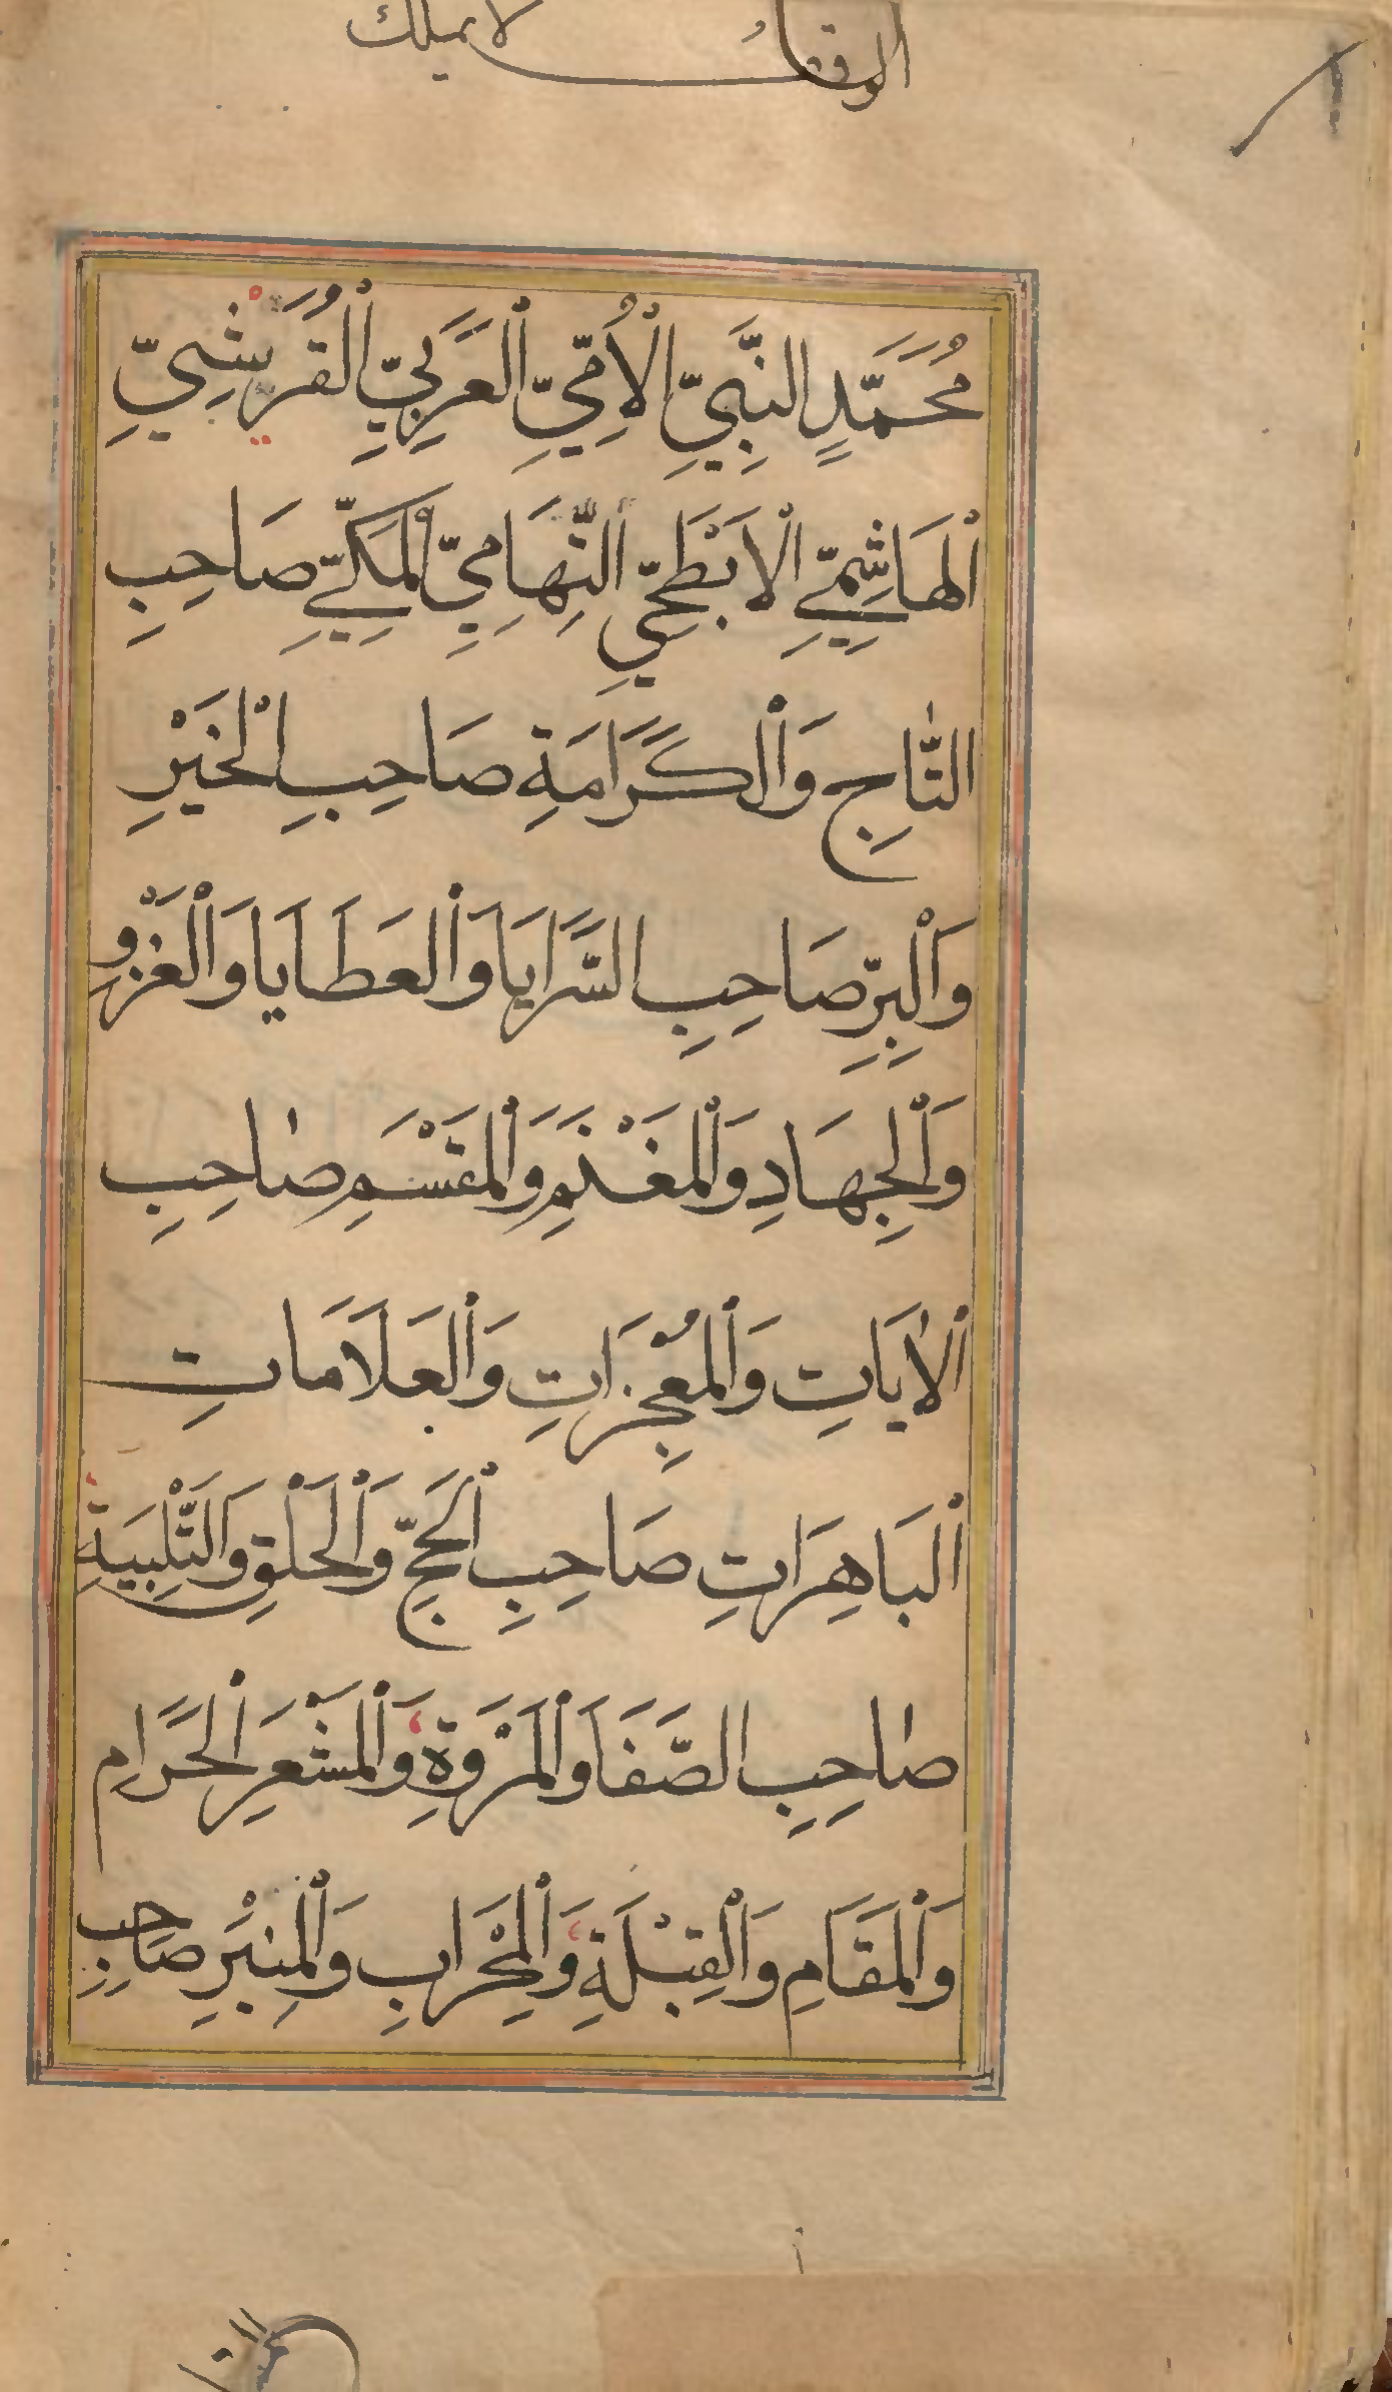 الوقف لا يملك
مُحَمَّدٍ النَّبِيِّ الْأُمِّيِّ الْعَرَبِيِّ الْقُرَيْشِيِّ
اَلْهَاشِمِيِّ الْاَبْطَحِيِّ التِّهَامِيِّ الْمَكِّيِّ صَاحِبِ
التَّاجِ وَالْكَرَامَةِ صَاحِبِ الْخَيْرِ
وَالْبِرِّ صَاحِبِ السَّرَايَا وَالْعَطَايَا وَالْغَزْوِ
وَالْجِهَادِ وَالْمَغْنَمِ وَالْمَقْسَمِ صَاحِبِ
الْاٰيَاتِ وَالْمُعْجِزَاتِ وَالْعَلَامَاتِ
الْبَاهِرَاتِ صَاحِبِ الْحَجِّ وَالْحَلْقِ وَالتَّلْبِيَةِ
صَاحِبِ الصَّفَا وَالْمَرْوَةِ وَالْمَشْعَرِ الْحَرَامِ
وَالْمَقَامِ وَالْقِبْلَةِ وَالْمِحْرَابِ وَالْمِنْبَرِ صَاحِبِ